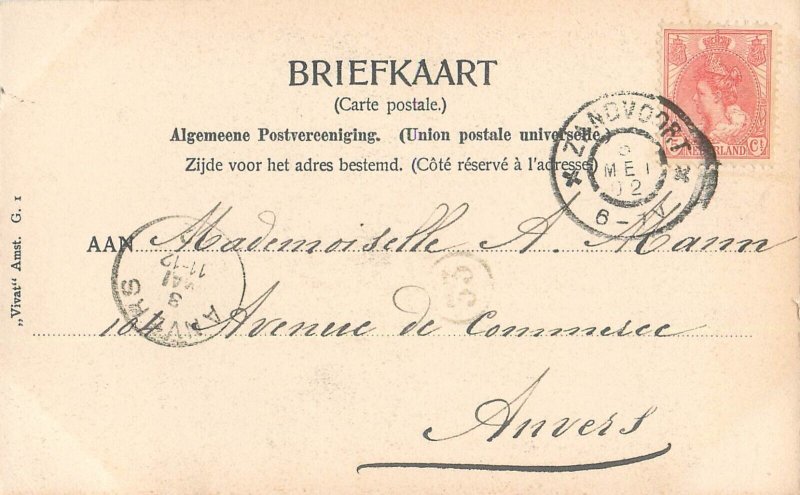 BRIEFKAART
(Carte postale.)
Algemeene Postvereeniging. (Union postale universelle.)
Zijde voor het adres bestemd. (Côté réservé à l'adresse)
NEDERLAND Ct
ZANDVOORT
MEI
02
6-
AAN Mademoiselle A. Mann
104 Avenue de Commerce
Anvers
ANVERS
3
MAI
11-12
53
„Vivat" Amst. G. 1